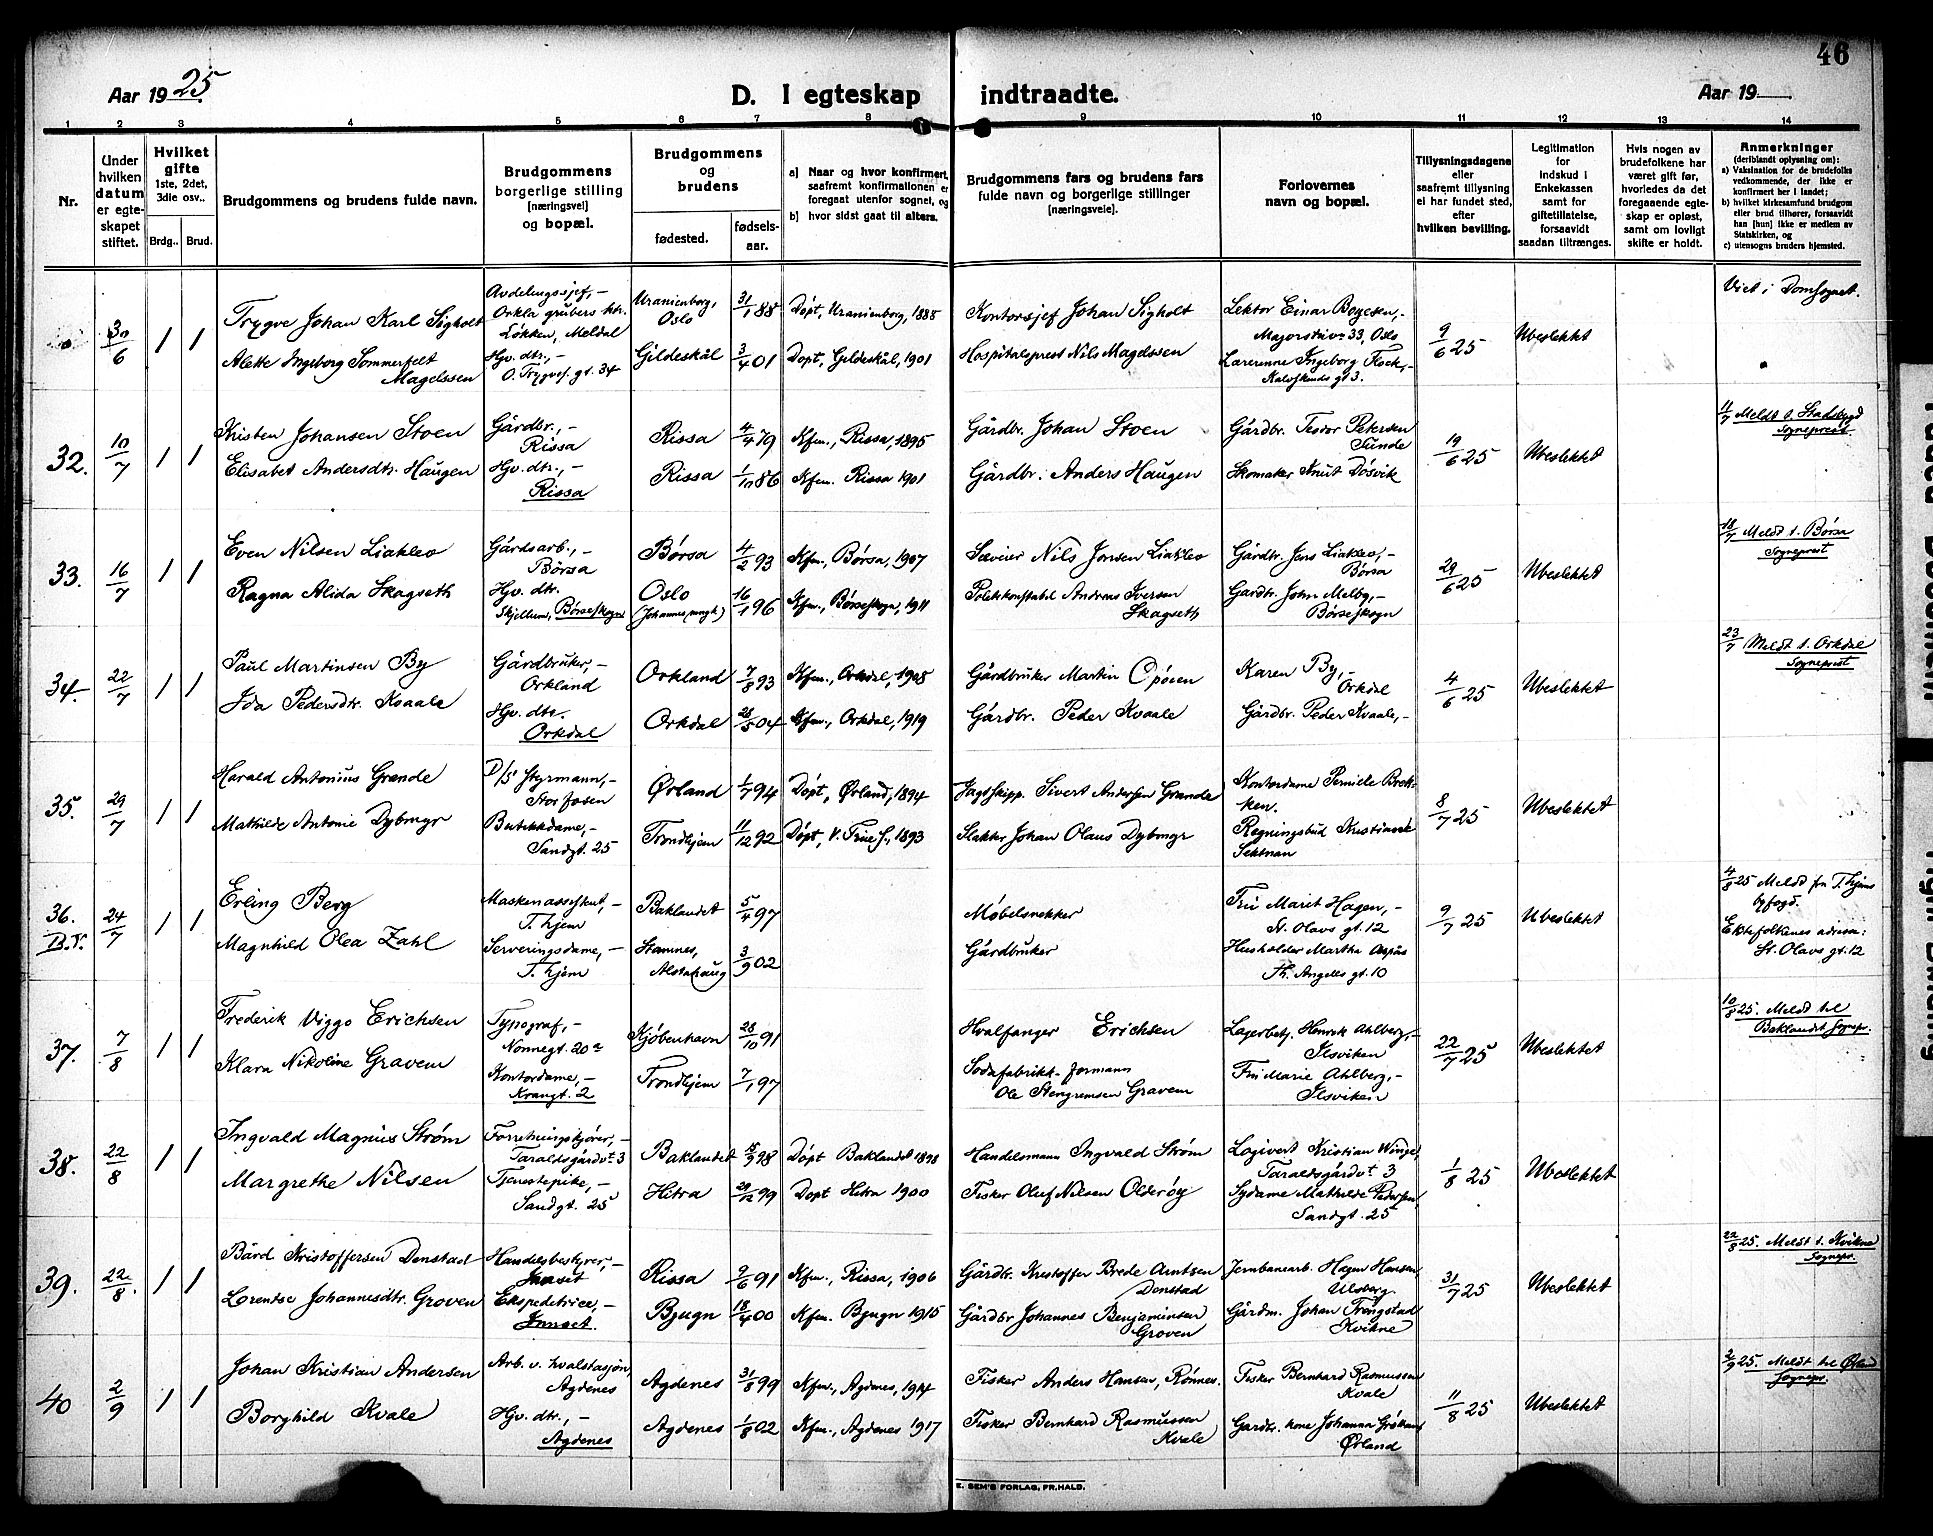 46
Aar 1925.
D. I egteskap indtraadte.
Aar 19
1 2 3 4 5 6 7 8 9 10 11 12 13 14
Nr.
Under hvilken datum er egteskapet stiftet.
Hvilket gifte
1ste, 2det, 3die osv..
Brdg.. Brud.
Brudgommens og brudens fulde navn.
Brudgommens borgerlige stilling
(næringsvei)
og bopæl.
Brudgommens og brudens
fødested.
fødsels-aar.
a) Naar og hvor konfirmert,
saafremt konfirmationen er
foregaat utenfor sognet, og
b) hvor sidst gaat til alters.
Brudgommens fars og brudens fars
fulde navn og borgerlige stillinger
(næringsveie).
Forlovernes
navn og bopæl.
Tillysningsdagene
eller
saafremt tillysning
ei har fundet sted,
efter
hvilken bevilling.
Legitimation
for
indskud i
Enkekassen
samt for
giftetillatelse,
forsaavidt
saadan tiltrænges.
Hvis nogen av
brudefolkene har
været gift før,
hvorledes da det
foregaaende egte-
skap er opløst,
samt om lovligt
skifte er holdt.
Anmerkninger
(deriblandt oplysning om):
a) Vaksination for de brudefolks
vedkommende, der ikke er
konfirmert her i landet;
b) hvilket kirkesamfund brudgom
eller brud tilhører, forsaavidt
han [hun] ikke er medlem av
Statskirken, og
c) utensogns bruders hjemsted.
30/6 1 1
Trygve Johan Karl Sigholt
Avdelingssjef,-
Orkla grubers
Løkken, Meldal
Uranienborg,
Oslo
31/1 88
Døpt, Uranienborg, 1888
Kontorsjef Johan Sigholt
Lektor Einar Boyesen,-
33, Oslo
9/6 25
Ubeslektet
Viet i Domsognet.
Alette Ingeborg Sommerfelt
Magelssen
Hjv. dtr.,-
O. Trygves. gt. 34
Gildeskål
3/4 01
Døpt, Gildeskål, 1901
Hospitalsprest Nils Magelssen
Lærerinne Ingeborg
Kalvskinds gt 3.
32. 10/7 1 1
Kristen Johansen Stoen
Gårdbr.,-
Rissa
Rissa
4/4 79
Kfm., Rissa, 1895
Gårdbr. Johan Stoen
Gårdbr. Teodor Petersen
Sunde
19/6 25
Ubeslektet
11/7 Meldt t. Stadsbygd
Sogneprest
Elisabet Andersdtr. Haugen
Hjv. dtr.,-
Rissa
Rissa
86
Kfm. Rissa 1901
Gårdbr. Anders Haugen
Skomaker Knut Døsvik
33. 16/7 1 1
Even Nilsen Liaklev
Gårdsarb.,-
Børsa
Børsa
4/2 93
Kfm., Børsa, 1907
Nils Jonsen Liaklev
Gårdbr. Jens Liaklev,-
Børsa
29/6 25
Ubeslektet
18/7 Meldt t. Børsa
Sogneprest
Ragna Alida Skagseth
Hjv. dtr.
Skjellum, Børseskogn
Oslo
16/1 96
Kfm., Børseskogn, 1911
Politikonstabel Andreas Iversen
Skagseth
Gårdbr. John Melby,-
Børseskogn
34. 22/7 1 1
Paul Martinsen By
Gårdbruker,-
Orkland
Orkland
7/8 93
Kfm., Orkdal, 1908
Gårdbruker Martin Opøien
Karen By,-
Orkdal
4/6 25
Ubeslektet
23/7 Meldt t. Orkdal
Sogneprest
Ida Pedersdtr. Kvaale
Hjv. dtr.
Orkdal
Orkdal
04
Kfm., Orkdal, 1919
Gårdbr. Peder Kvaale
Gårdbr. Peder Kvaale,-
35. 29/7 1 1
Harald Antonius Grande
D/S Styrmann,-
Storfosen
Ørland
1/7 94
Døpt, Ørland, 1894
Jagtskipp. Sivert Andersen Grande
Kontordame Pernille Brek-
ken.
8/7 25
Ubeslektet
Mathilde Antonie Dybmyr
Butikkdame,-
Sandgt. 25
Trondhjem
11/12 92
Døpt, V. Frue s., 1893
Slakter Johan Olaus Dybmyr
Regningsbud Kristian
36.
B.V. 24/7 1 1
Erling Berg
Maskenassistent,-
T. hjem
Baklandet
5/4 97
Møbelsnekker
Fru Marit Hagen,-
St. Olavs gt. 12
9/7 25
Ubeslektet
4/8 25 Meldt fra T. hjems
byfogd.
Ektefolkenes adresse:
St. Olavs gt. 12
Magnhild Olea Zahl
Serveringsdame,-
T. hjem
Stamnes,
Alstahaug
3/9 02
Gårdbruker
Husholder Martha Aspås
Th. Angells gt. 10
37. 7/8 1 1
Frederik Viggo Erichsen
Typograf,-
Nonnegt. 20a
Kjøbenhavn
28/10 91
Hvalfanger Erichsen
Lagerbetj. Henrik Ahlberg,-
Ilsviken
22/7 25
Ubeslektet
10/8 25. Meldt til
Baklandet Sognepr.
Klara Nikoline Gravem
Kontordame,-
Krangt. 2
Trondhjem
7/1 97
Sodafabrikk-formann
Ole Stengrimsen Gravem
Fru Marie Ahlberg,-
Ilsviken
38. 22/8 1 1
Ingvald Magnus Strøm
Forretningskjører,-
Taraldsgårdvt 3
Baklandet
98
Døpt Baklandet 1898
Handelsmann Ingvald Strøm
Logivert Kristian Winge,
Taraldsgårdvt 3
1/8 25
Ubeslektet
Margrethe Nilsen
Tjenestepike,-
Sandgt. 25
Hitra
29/12 99
Døpt Hitra 1900
Fisker Oluf Nilsen Olderøy
Sydame Mathilde Pedersen,
Sandgt. 25
39. 22/8. 1 1
Bård Kristoffersen Denstad
Handelsbestyrer,-
Innset
Rissa
9/6 91
Kfm., Rissa, 1906
Gårdbr. Kristoffer Brede Arntsen
Denstad
Jernbanearb. Hagen Hansen
Ulsberg
31/7 25
Ubeslektet
22/8 25. Meldt t. Kvikne
Sognepr.
Lorentse Johannesdtr. Groven
Ekspeditrice,-
Innset.
Bjugn
18/4 00
Kfm. Bjugn 1915
Gårdbr Johannes Benjaminsen
Groven
Gårdm. Johan Trøngstad
Kvikne
40 2/9 1 1
Johan Kristian Andersen
Arb. v. hvalstasjon,
Agdenes
Agdenes
31/8 99
Kfm., Agdenes, 1914
Fisker Anders Hansen, Rønnes.
Fisker Bernhard Rasmussen
Kvale
11/8 25
Ubeslektet
2/9 25. Meldt til Ørland
Sognepr.
Borghild Kvale
Hjv. dtr.,-
Agdenes
Agdenes
1/8 02
Kfm., Agdenes 1917
Fisker Bernhard Rasmussen
Kvale
Gardbr. kone Johanna
Ørland
E. SEM'S FORLAG, FR.HALD.